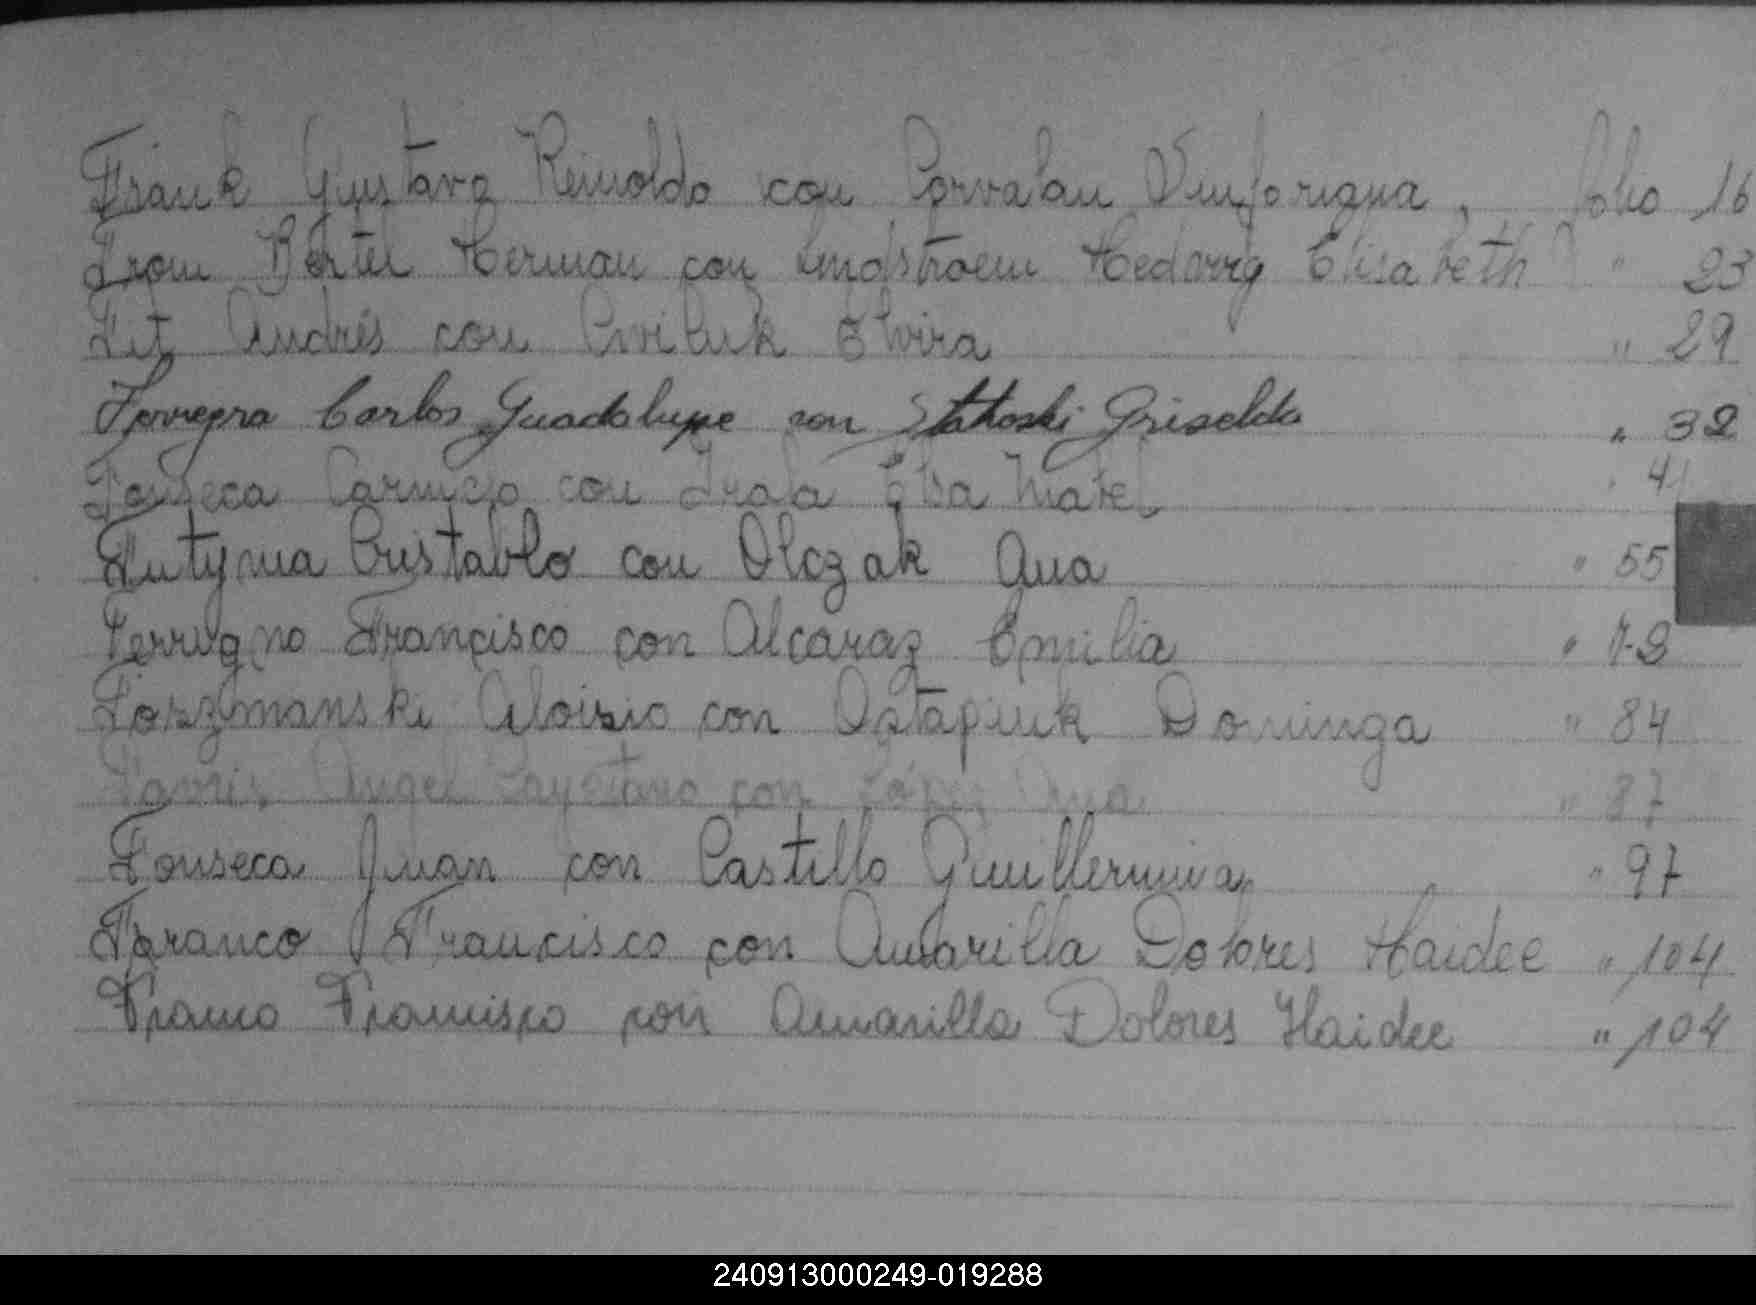 Frank Gustavo Reinoldo con Corvalan Sinforigna, folio 16
From Bertel Herman con Lindstroem Hedwig Elisabeth " 23
Fit Andrés con Cwiluk Elvira " 29
Ferreyra Carlos Guadalupe con Statoski Griselda " 32
Fonseca Carmelo con Irala Elsa Mabel " 41
Futyma Cristablo con Olczak Ana " 55
Ferrugno Francisco con Alcaraz Emilia "
Forzmanski Aloisio con Ostapiuk Dominga " 84
Angel Cayetano con López Ana " 87
Fonseca Juan con Castillo Guillermina " 97
Franco Francisco con Amarilla Dolores Haidee " 104
Franco Francisco con Amarilla Dolores Haidee " 104
240913000249-019288